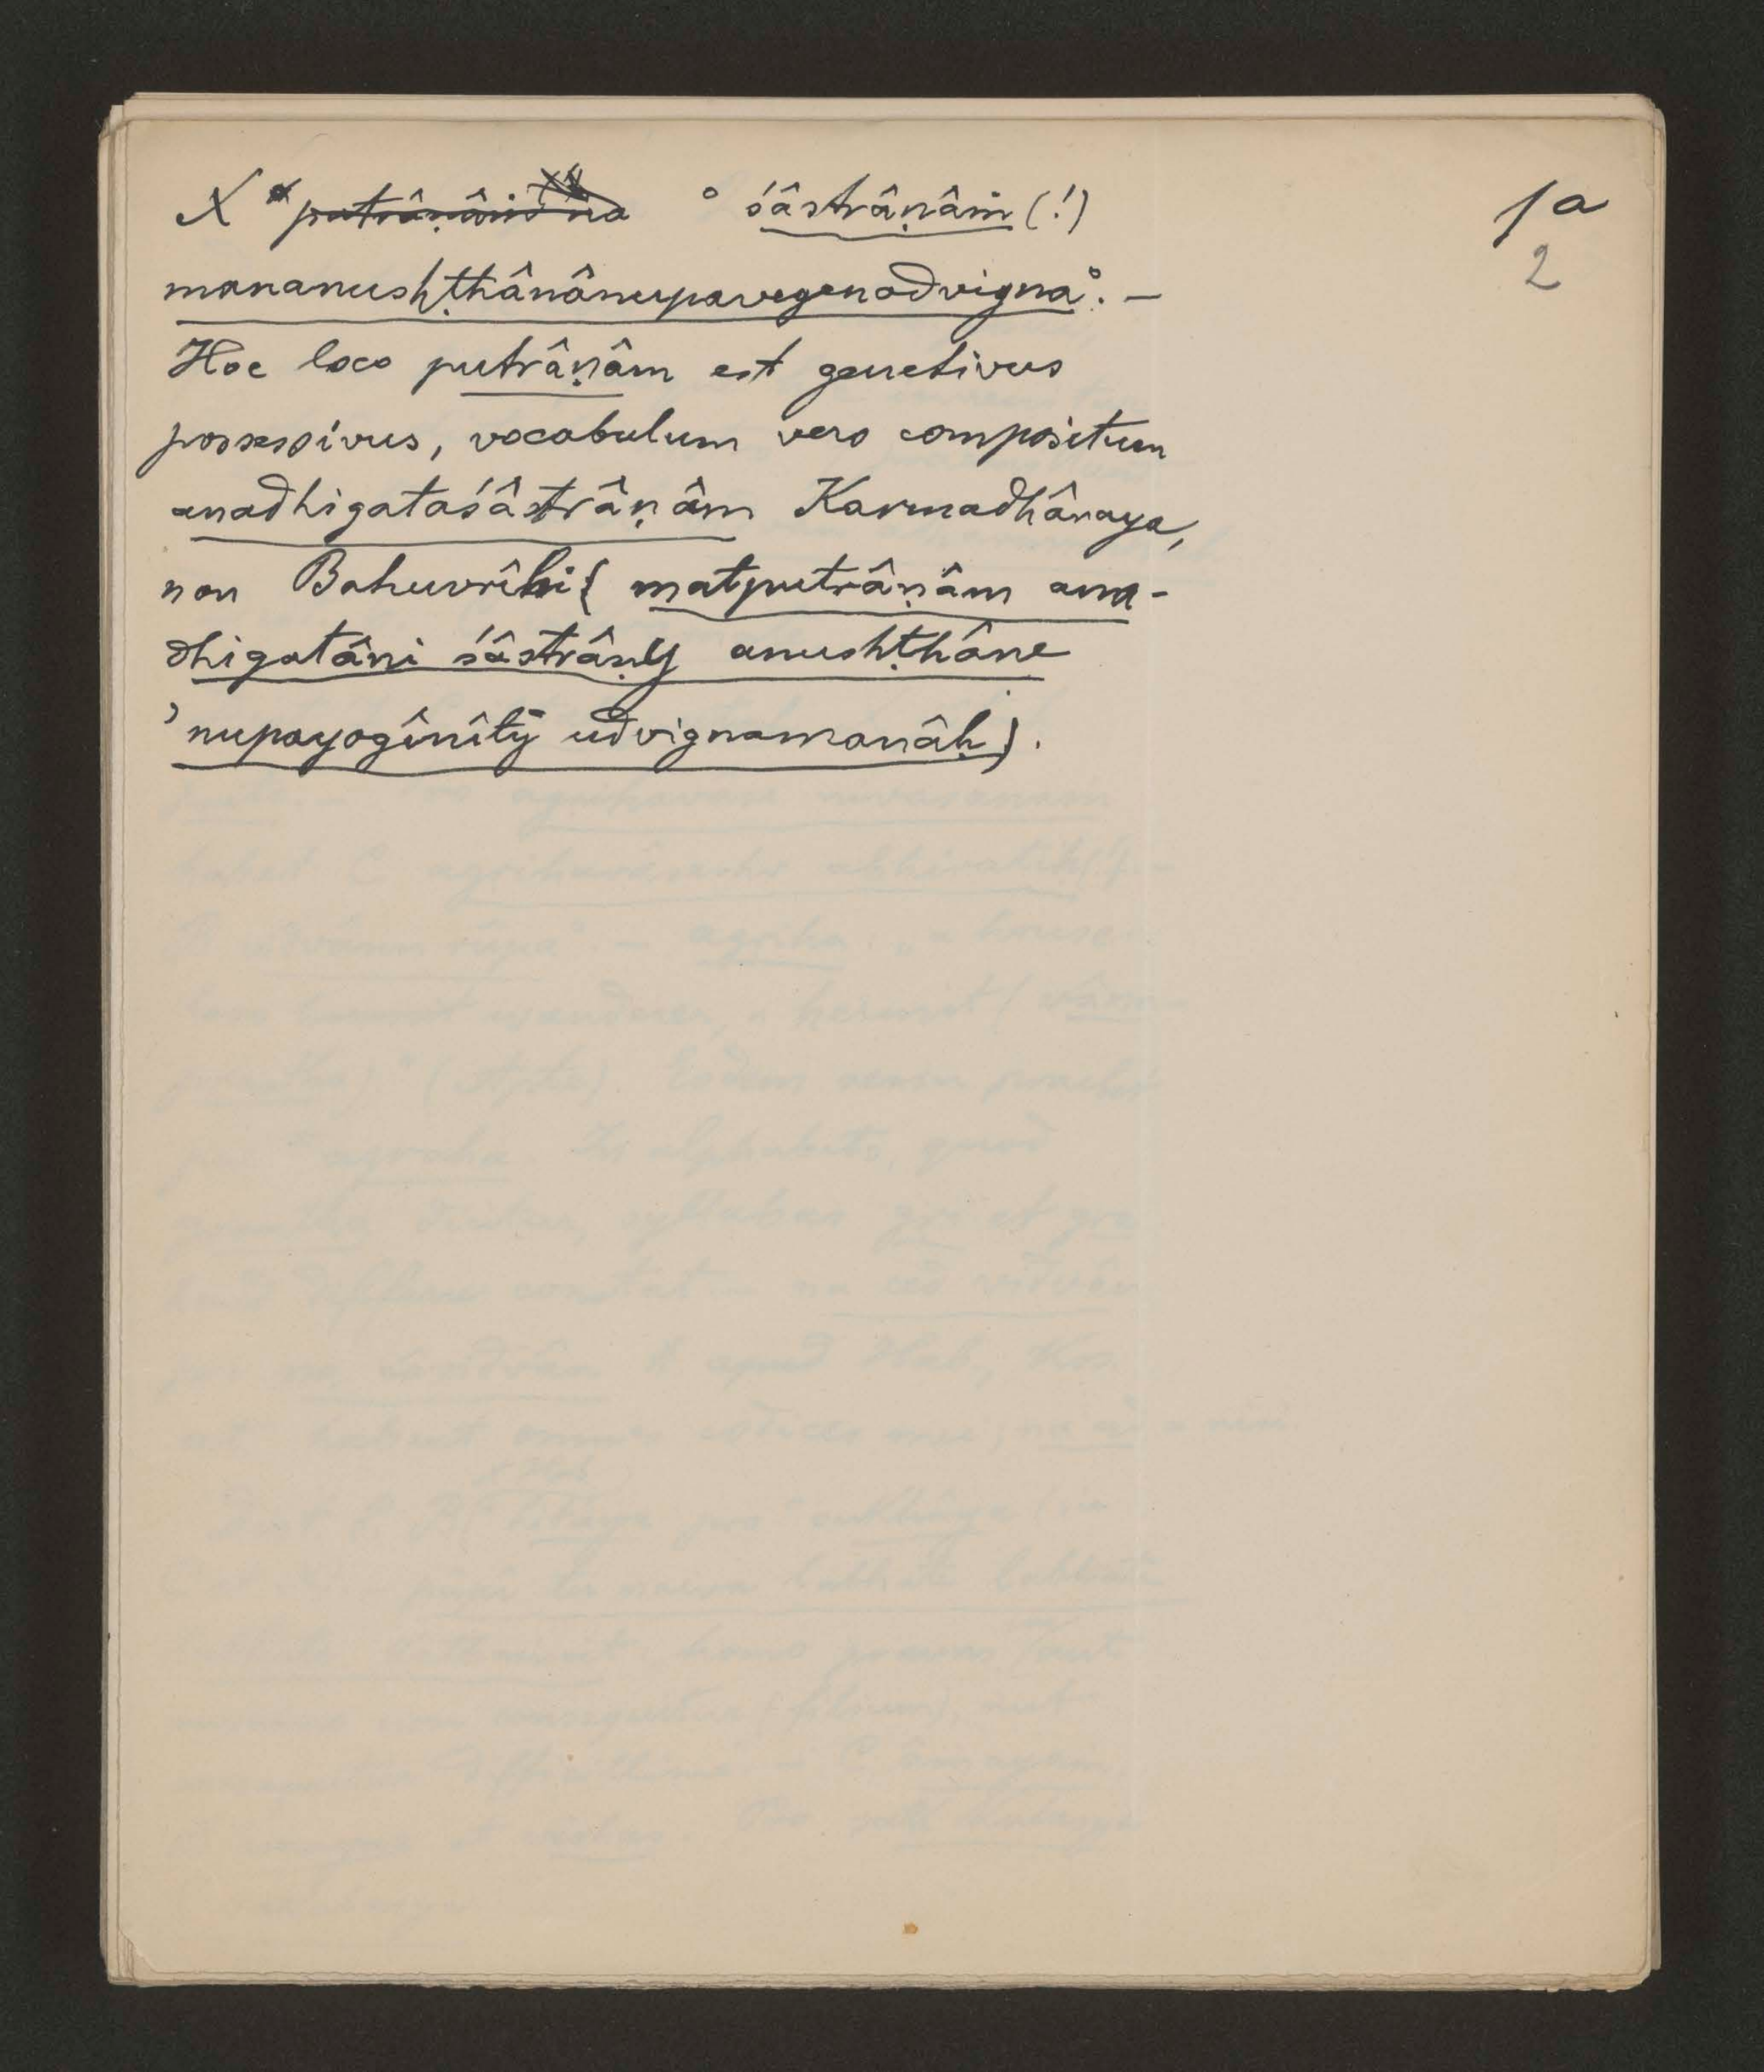 X ° śâstrâṇâṁ (!)
1a
2
mananushṭhânânupavegenodvigna°. –
Hoc loco putrâṇâm est genetivus
possessivus, vocabulum vero compositum
anadhigataśâstrâṇâm Karmadhâraya,
non Bahuvrîhi (matputrâṇâm ana-
dhigatâni śâstrâṇy anushṭhâne
'nupayogînîty udvignamanâḥ).